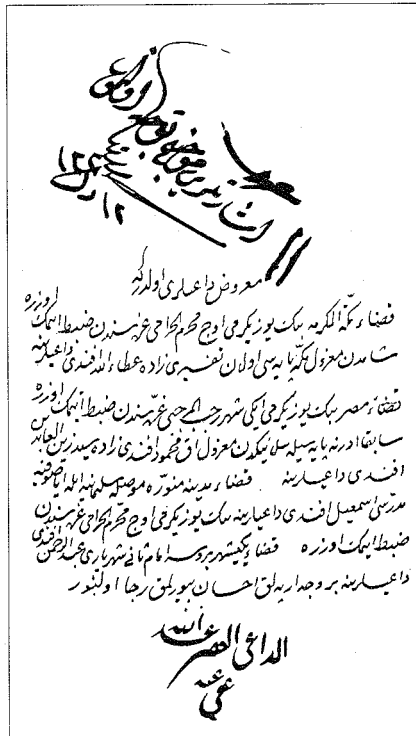 اشارتلری موجبنجه توجیه اولنه
معروض داعیلری اولدر که
قضاء مكّة المكرمه بیك یوز یکرمی اوج محرم الحرامی غره سندن ضبط ایتمك اوزره
شامدن معزول مكّه پایه سی اولان تفسیری زاده عطاء الله افندی داعیلرینه
قضاء مصر بیك یوز یکرمی ایکی شهر رجب المرجبی غره سندن ضبط ایتمك اوزره
سابقا ادرنه پایه سیله سلانیکدن معزول اق محمود افندی زاده سید زین العابدین
افندی داعیلرینه قضاء مدینه منوره موصله سلیمانیه ایله ایاصوفیه
مدرسی اسمعیل افندی داعیلرینه بیك یوز یکرمی اوج محرم الحرامی غره سندن
ضبط ایتمك اوزره قضاء یکیشهر بروسه امام ثانئ شهریاری عبد الرحمن افندی
داعیلرینه بر وجه ارپه لق احسان بیورلمق رجا اولنور
الداعی الفقیر
عبد الله
عفی عنه